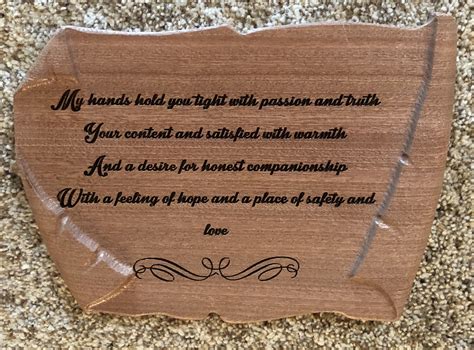 My hands hold you tight with passion and truth
Your content and satisfied with warmth
And a desire for honest companionship
With a feeling of hope and a place of safety and
love